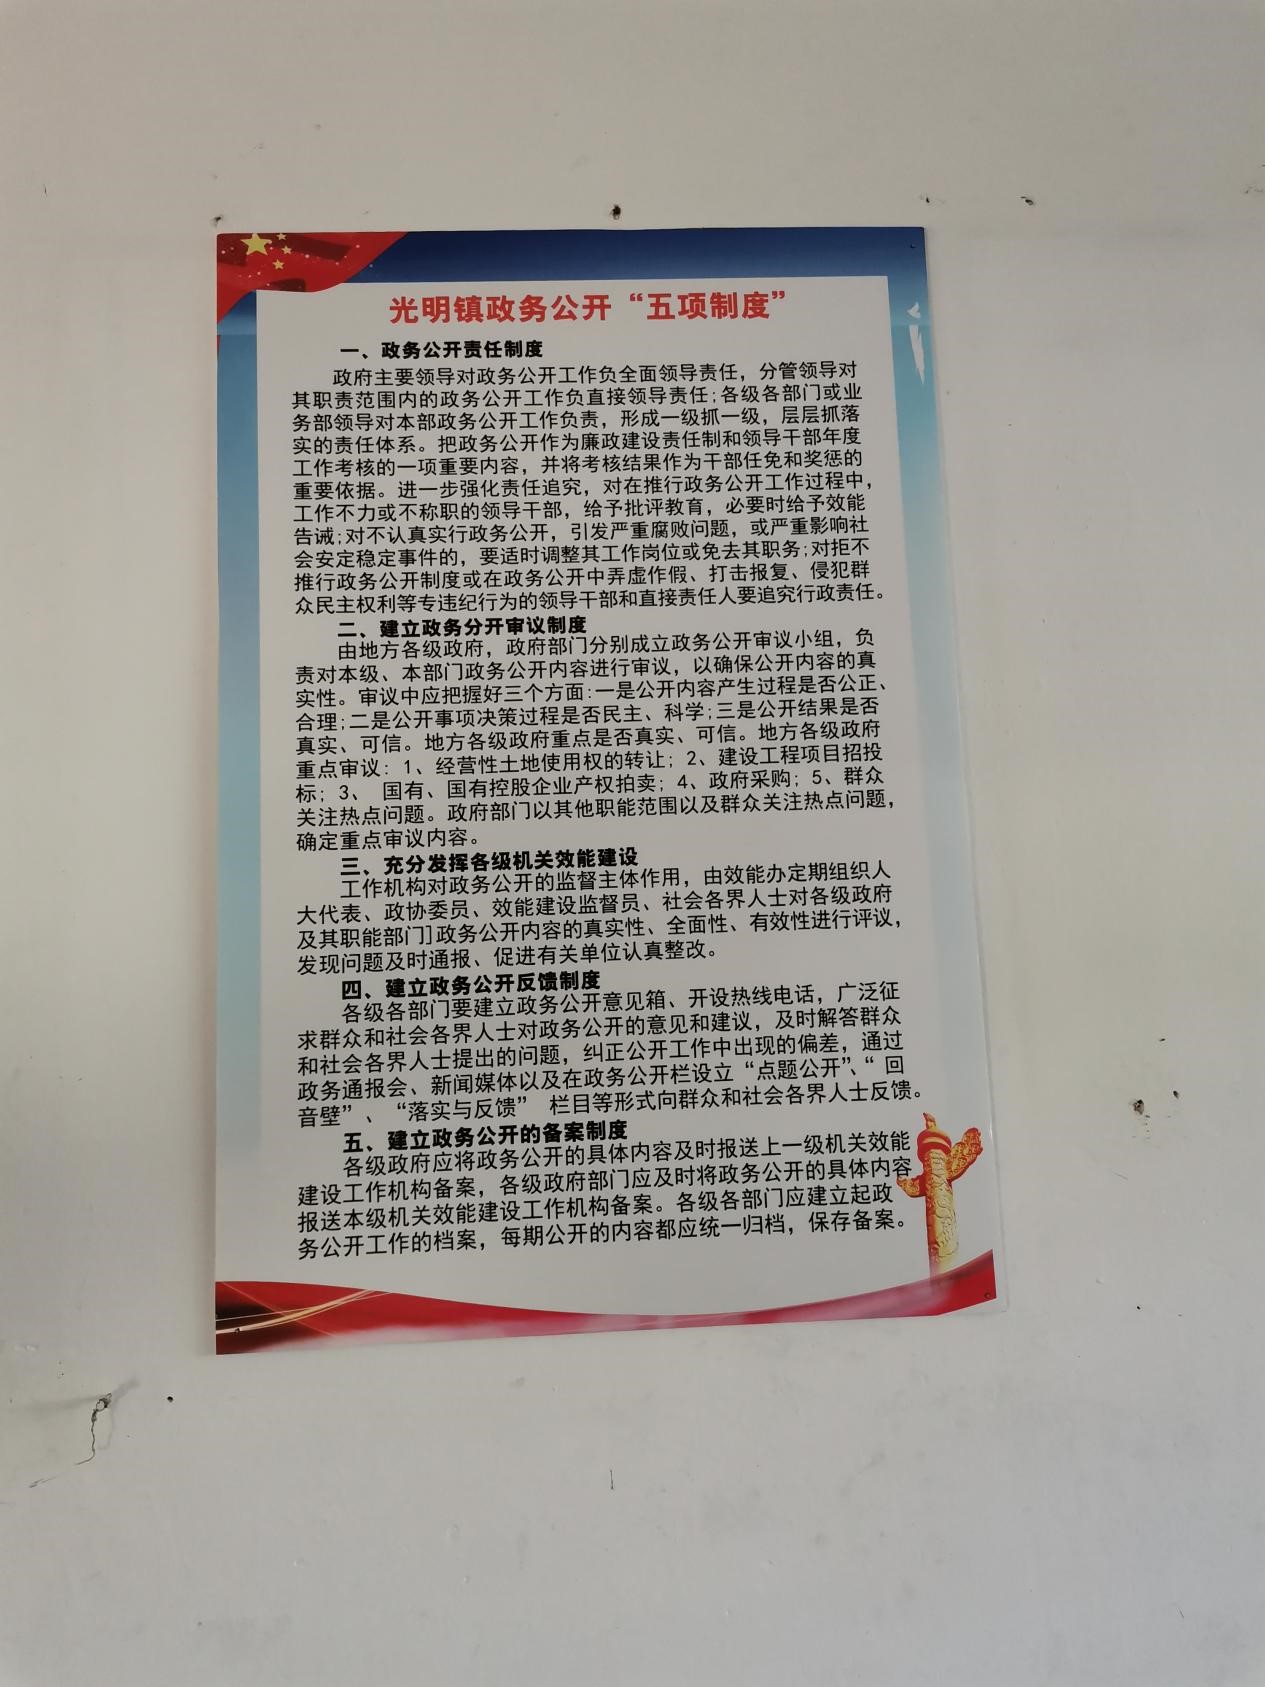 光明镇政务公开“五项制度”
一、政务公开责任制度
政府主要领导对政务公开工作负全面领导责任，分管领导对
其职责范围内的政务公开工作负直接领导责任;各级各部门或业
务部领导对本部政务公开工作负责，形成一级抓一级，层层抓落
实的责任体系。把政务公开作为廉政建设责任制和领导干部年度
工作考核的一项重要内容，并将考核结果作为干部任免和奖惩的
重要依据。进一步强化责任追究，对在推行政务公开工作过程中，
工作不力或不称职的领导干部，给予批评教育，必要时给予效能
告诫;对不认真实行政务公开，引发严重腐败问题，或严重影响社
会安定稳定事件的，要适时调整其工作岗位或免去其职务;对拒不
推行政务公开制度或在政务公开中弄虚作假、打击报复、侵犯群
众民主权利等专违纪行为的领导干部和直接责任人要追究行政责任。
二、建立政务分开审议制度
由地方各级政府，政府部门分别成立政务公开审议小组，负
责对本级、本部门政务公开内容进行审议，以确保公开内容的真
实性。审议中应把握好三个方面:一是公开内容产生过程是否公正、
合理;二是公开事项决策过程是否民主、科学;三是公开结果是否
真实、可信。地方各级政府重点是否真实、可信。地方各级政府
重点审议: 1、经营性土地使用权的转让; 2、建设工程项目招投
标; 3、 国有、国有控股企业产权拍卖; 4、政府采购; 5、群众
关注热点问题。政府部门以其他职能范围以及群众关注热点问题，
确定重点审议内容。
三、充分发挥各级机关效能建设
工作机构对政务公开的监督主体作用，由效能办定期组织人
大代表、政协委员、效能建设监督员、社会各界人士对各级政府
及其职能部门]政务公开内容的真实性、全面性、有效性进行评议，
发现问题及时通报、促进有关单位认真整改。
四、建立政务公开反馈制度
各级各部门要建立政务公开意见箱、开设热线电话，广泛征
求群众和社会各界人士对政务公开的意见和建议，及时解答群众
和社会各界人士提出的问题，纠正公开工作中出现的偏差，通过
政务通报会、新闻媒体以及在政务公开栏设立“点题公开”、“回
音壁”、“落实与反馈” 栏目等形式向群众和社会各界人士反馈。
五、建立政务公开的备案制度
各级政府应将政务公开的具体内容及时报送上一级机关效能
建设工作机构备案，各级政府部门应及时将政务公开的具体内容
报送本级机关效能建设工作机构备案。各级各部门应建立起政
务公开工作的档案，每期公开的内容都应统一归档，保存备案。